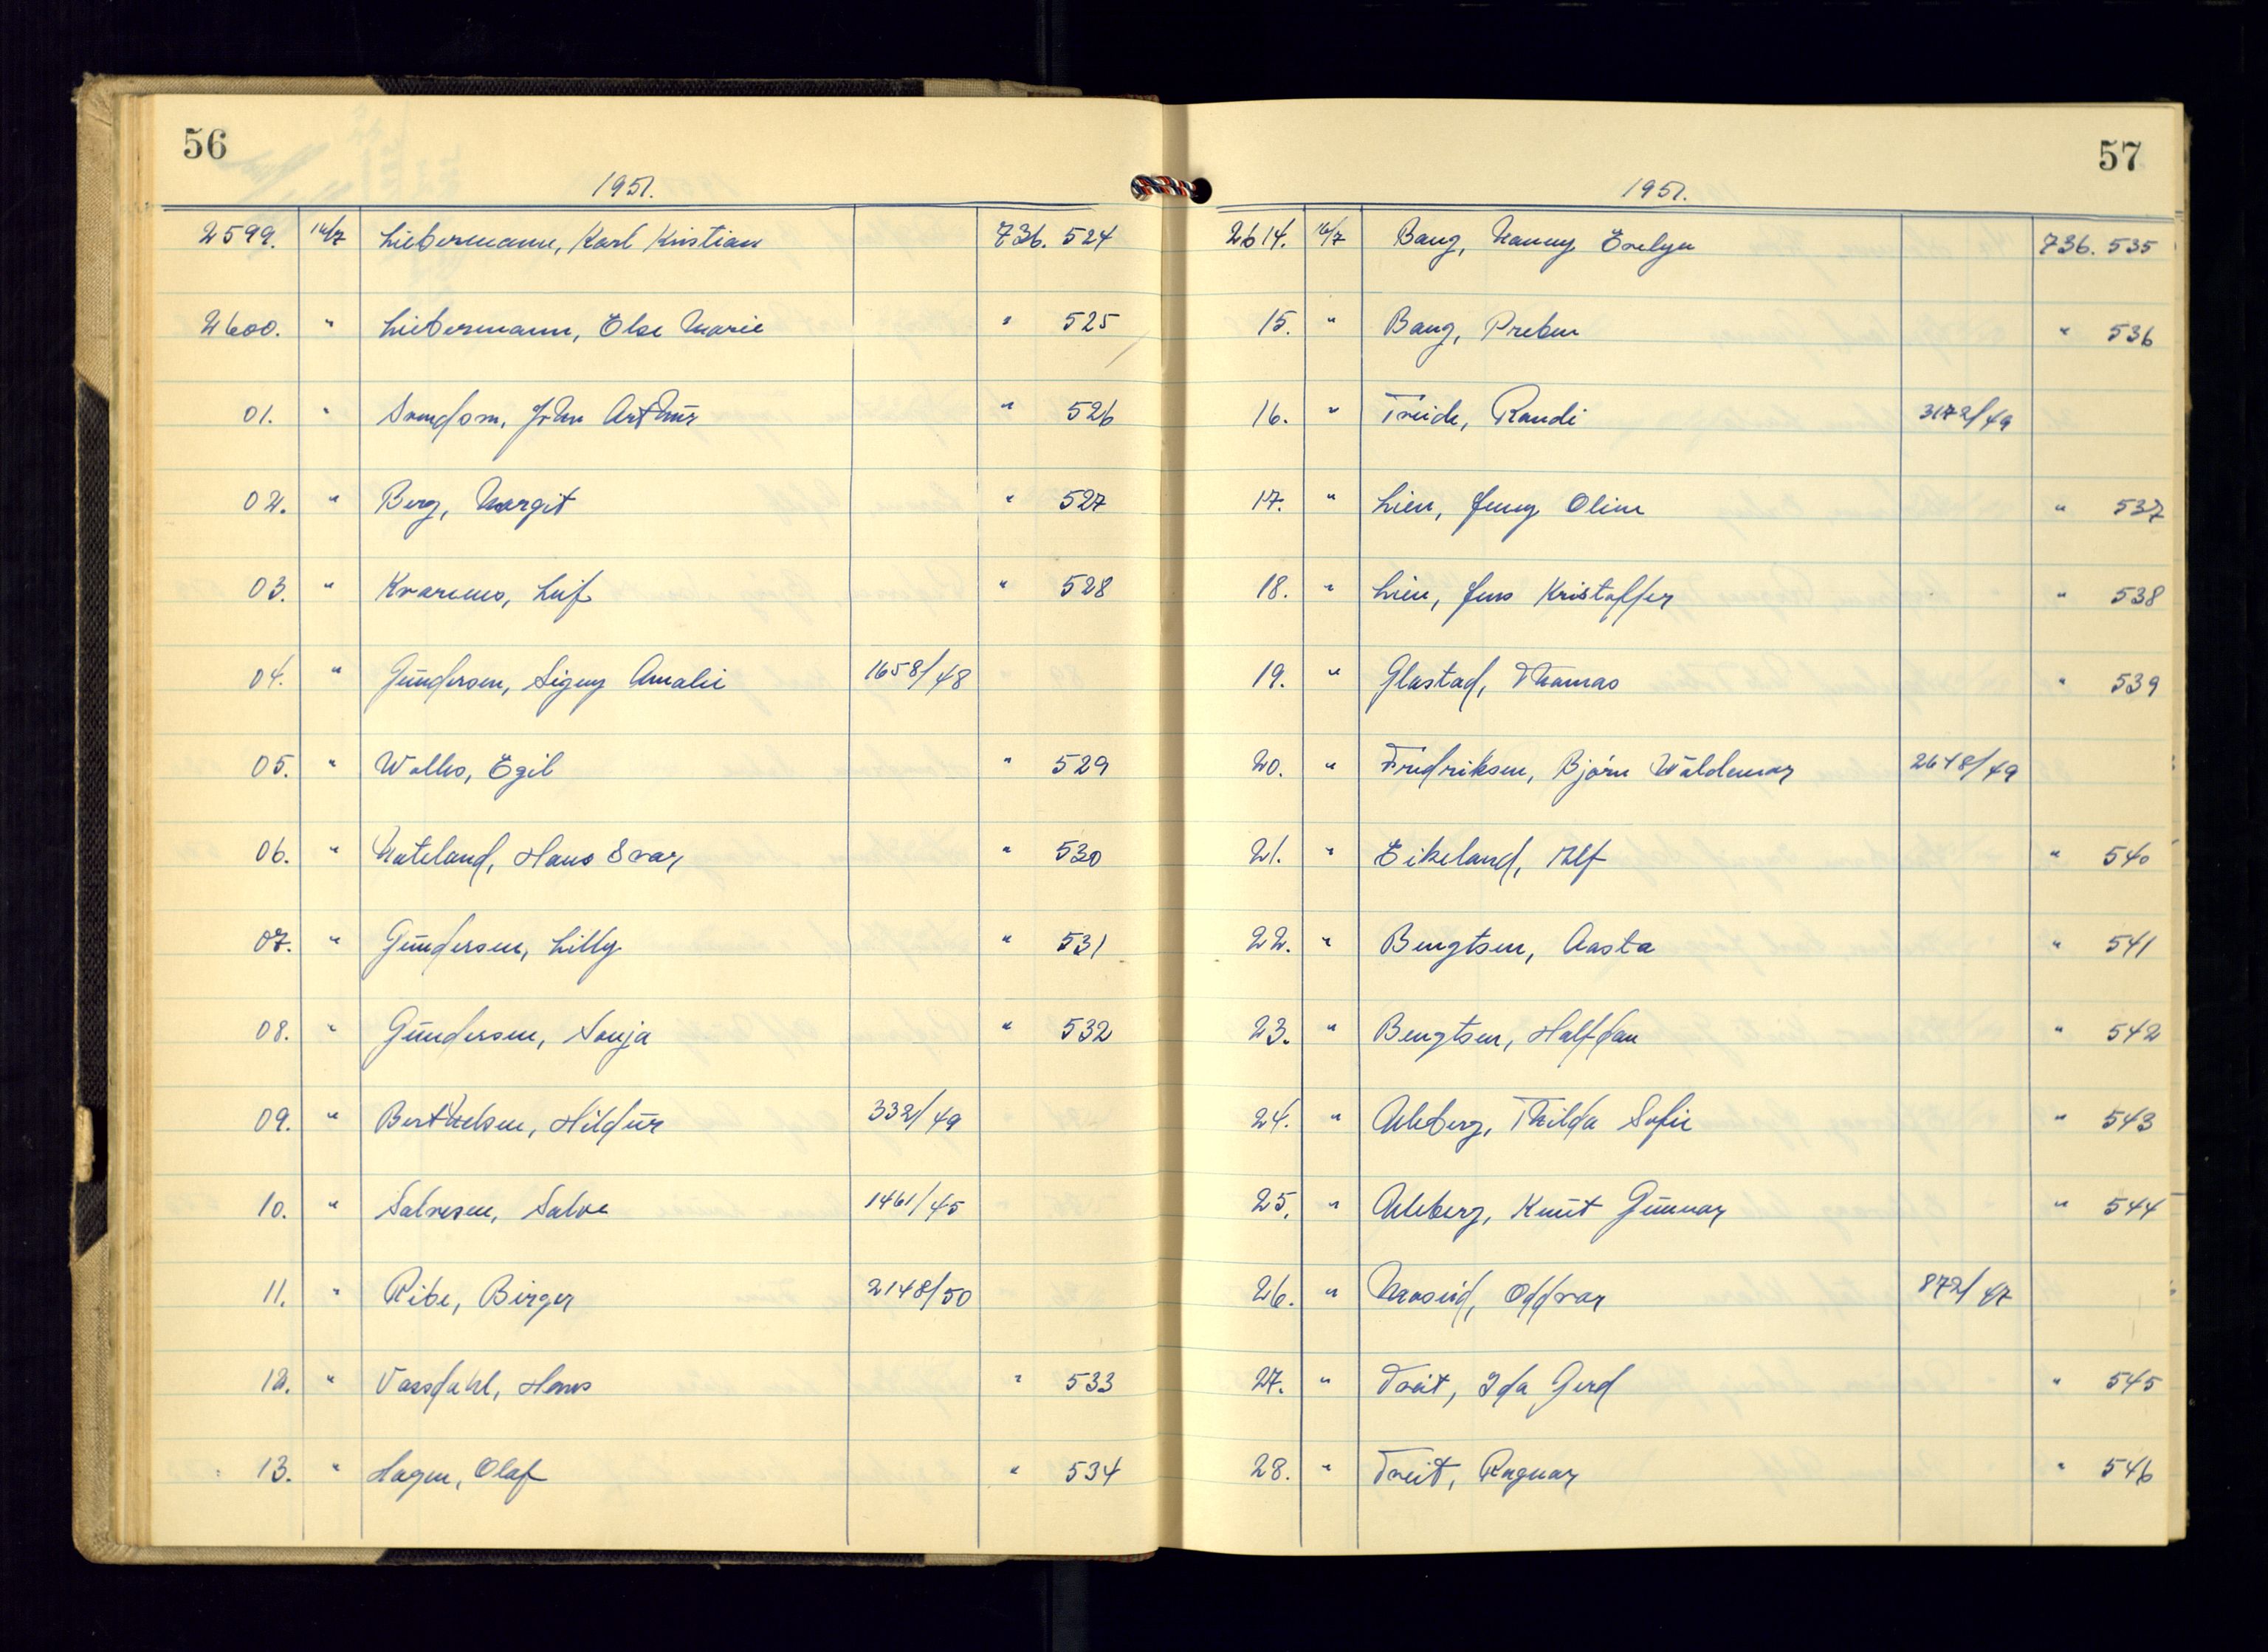 56
1951.
2599. 16/7 Liebermann, Karl Kristian 736. 524
2600. " Liebermann, Else Marie " 525
01. " Svendsen, John Arthur " 526
02. " Berg, Margit " 527
03. " Kvarenes, Leif " 528
04. " Gundersen, Signy Amalie 1658/48
05. " Egil " 529
06. " Hateland, Hans Svar " 530
07. " Gundersen, Lilly " 531
08. " Gundersen, Sonja " 532
09. " Berthelsen, Hildur 332/49
10. " Salvesen, Salve 1461/45
11. " Ribe, Birger 2148/50
12. " Vassdahl, Hans " 533
13. " Hagen, Olaf " 534
57
1951.
2614. 16/7 Bang, Nanny Evelyn 736. 535
15. " Bang, Preben " 536
16. " Randi 3172/49
17. " Lien, Jenny Oline " 537
18. " Lien, Jens Kristoffer " 538
19. " Glastad, Thomas " 539
20. " Fredriksen, Bjørn Waldemar 2648/49
21. " Eikeland, Alf " 540
22. " Bengtsen, Aasta " 541
23. " Bengtsen, Halfdan " 542
24. " Uleberg, Thilda Sofie " 543
25. " Uleberg, Knut Gunnar " 544
26. " Oddvar 872/47
27. " Tveit, Ida Gerd " 545
28. " Tveit, Ragnar " 546